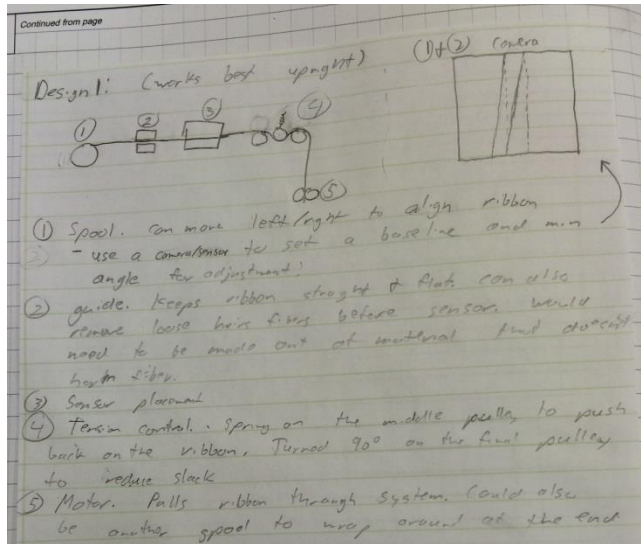 Continued from page
Design 1: (works best upright)
(1) & (2) camera
1 2 3 4
5
1 Spool. can move left/right to align ribbon
- use a camera/sensor to set a baseline and min
angle for adjustment!
2 guide. Keeps ribbon straight & flat. can also
remove loose hairs fibers before sensor. Would
need to be made out of material that doesn't
harm fiber.
3 Sensor placement
4 Tension control. Spring on the middle pulley to push
back on the ribbon. Turned 90° on the final pulley
to reduce slack
5 Motor. Pulls ribbon through system. Could also
be another spool to wrap around at the end